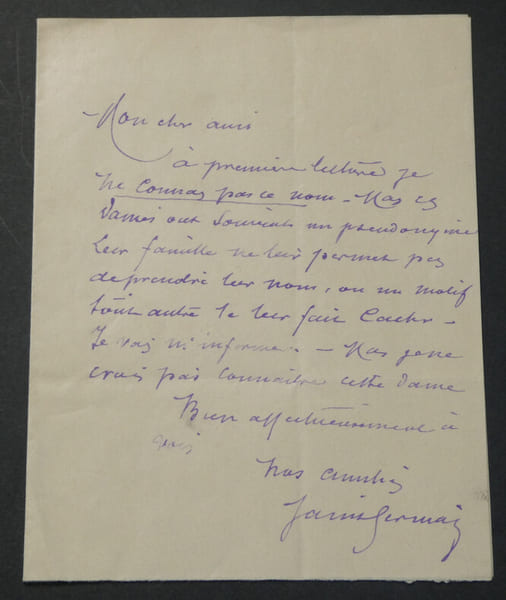 Mon cher ami
à première lecture je
ne connais pas ce nom - Mais ces
Dames ont souvent un pseudonyme
Leur famille ne leur permet pas
de prendre leur nom, ou un motif
tout autre le leur fait cacher -
Je vais m'informer. - Mais je ne
crois pas connaître cette Dame
Bien affectueusement à
vous